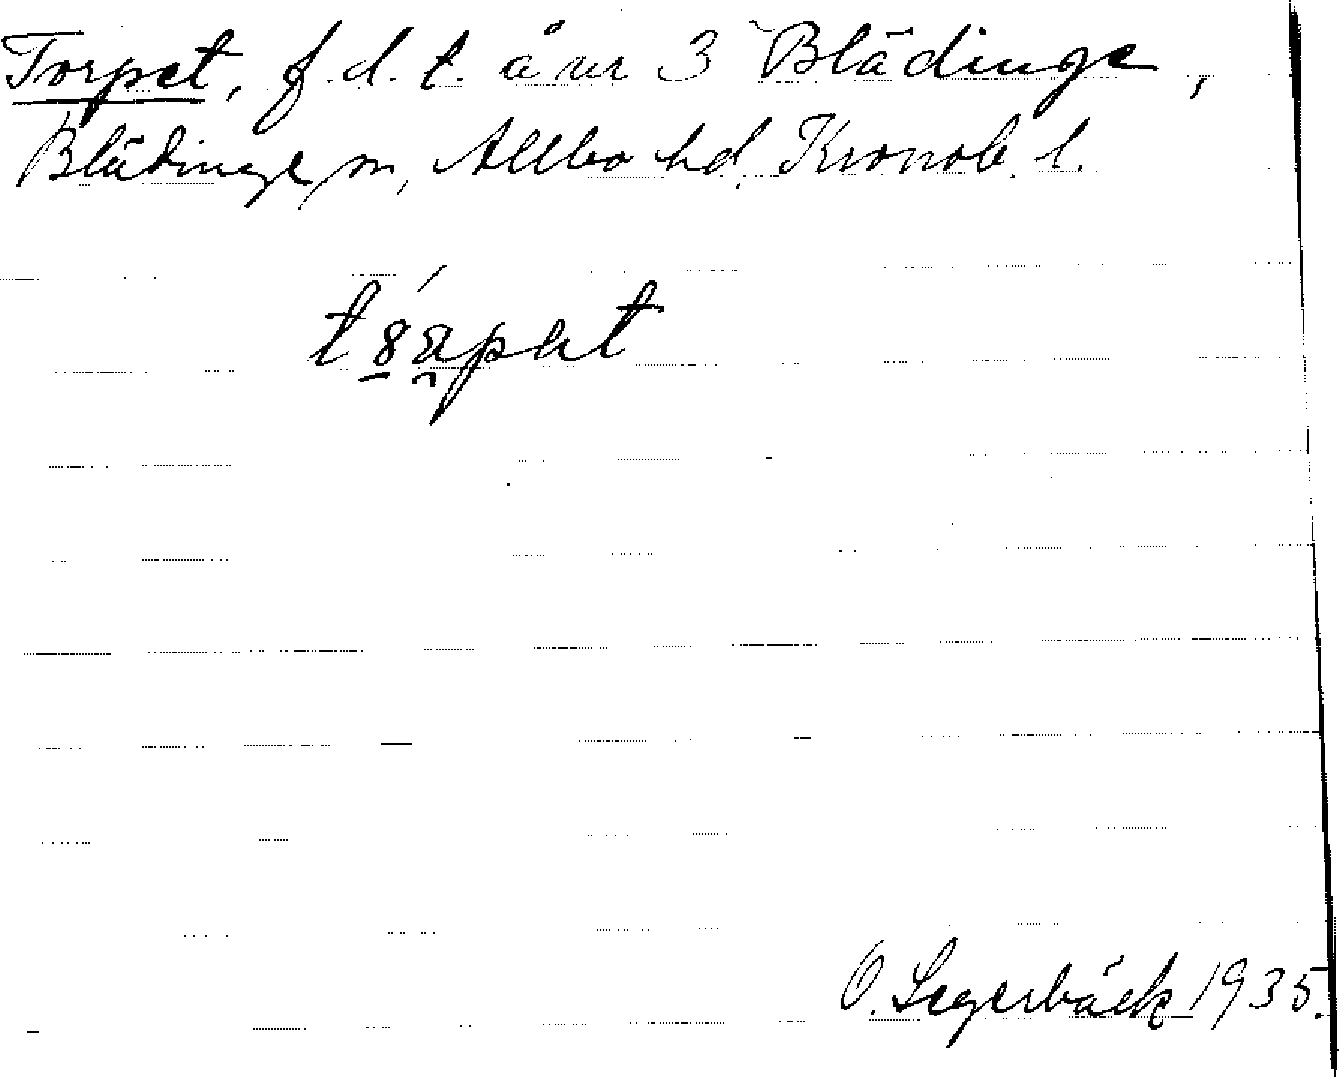 Torpet, f. d. t. å nr 3 Blädinge,
Blädinge sn, Allbo hd, Kronob. l.
O. Segerbäck 1935.